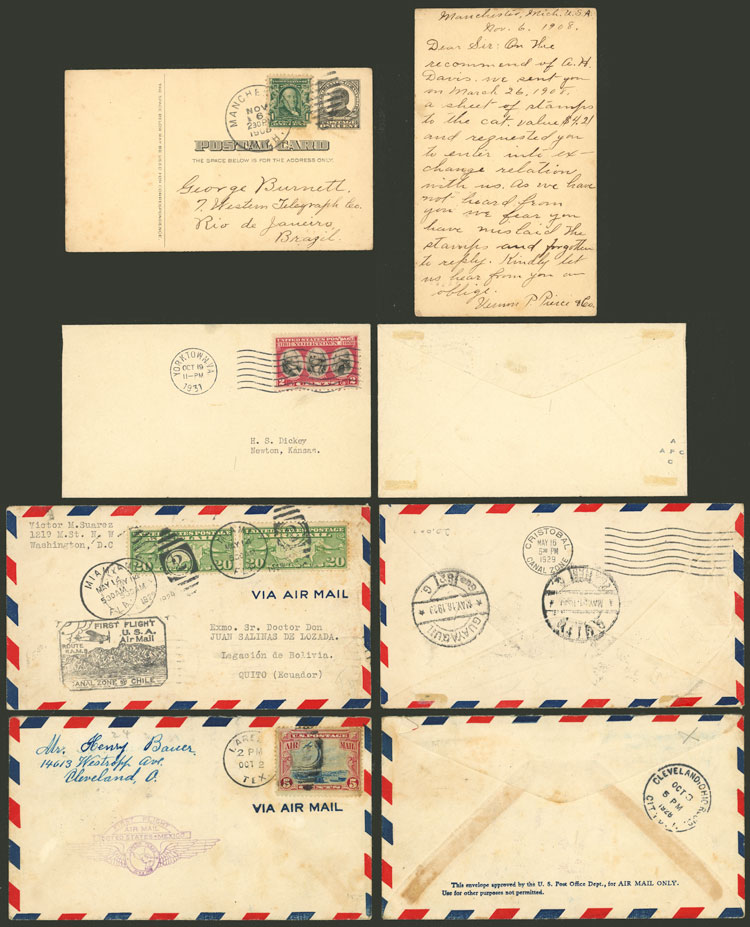 THE SPACE BELOW IS FOR THE ADDRESS ONLY.
POSTAL CARD
MANCHESTER
NOV
6
230P
1908
George Burnett.
7. Western Telegraph Co.
Rio de Janeiro
Brazil.
Manchester, Mich. U.S.A.
Nov. 6, 1908.
Dear Sir: On the
recommend of A. H.
Davis we sent you
on March 26, 1908.
a sheet of stamps
to the cat. value $4.21
and requested you
to enter into ex-
change relation
with us. As we have
not heard from
you we fear you
have mislaid the
stamps and forgotten
to reply. Kindly let
us hear from you &
oblige.
Vernor P. Pierce & Co.
YORKTOWN, VA.
OCT 19
11-PM
1931
UNITED STATES POSTAGE
1781 YORKTOWN 1931
2 2
H. S. Dickey
Newton, Kansas.
A
A P C
C
Victor M. Suarez
1219 M.St. N. W.
Washington, D.C
UNITED STATES POSTAGE
20 20 20 20
MIAMI
FLA.
VIA AIR MAIL
FIRST FLIGHT
U.S.A.
Air Mail
ROUTE
F.A.M.
CANAL ZONE to CHILE
Exmo. Sr. Doctor Don
JUAN SALINAS DE LOZADA.
Lagación de Bolivia.
QUITO (Ecuador)
CRISTOBAL
MAY 16
PM
1929
CANAL ZONE
GUAYAQUIL
MAY 18 1929
Mr. Henry Bauer
14613 Westropp Ave.
Cleveland, O.
LAREDO
2 PM
OCT 2
TEX.
U.S. POSTAGE
AIR MAIL
5 5
VIA AIR MAIL
FIRST FLIGHT
AIR MAIL
UNITED STATES-MEXICO
CLEVELAND, OHIO
OCT 3
5 PM
1928
This envelope approved by the U. S. Post Office Dept., for AIR MAIL ONLY.
Use for other purposes not permitted.